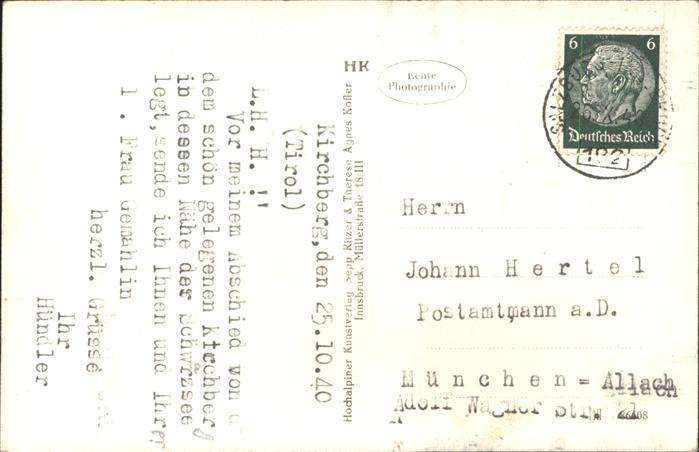 Kirchberg, den 25.10.40
(Tirol)
L.H. H. !"
Vor meinem Abschied von
dem schön gelegenen Kirchberg
in dessen Nähe der Schwrzsee
legt, sende ich Ihnen und Ihrer
l. Frau Gemahlin
herzl. Grüsse
Ihr
Hündler
HK
Echte
Photographie
Hochalpiner Kunstverlag Sepp Ritzer & Therese Agnes Kofler
Innsbruck, Müllerstraße 18 III
6 6
Deutsches Reich
Herrn
Johann Hertel
Postamtmann a.D.
München = Allach
Adolf Wagner Str. 21